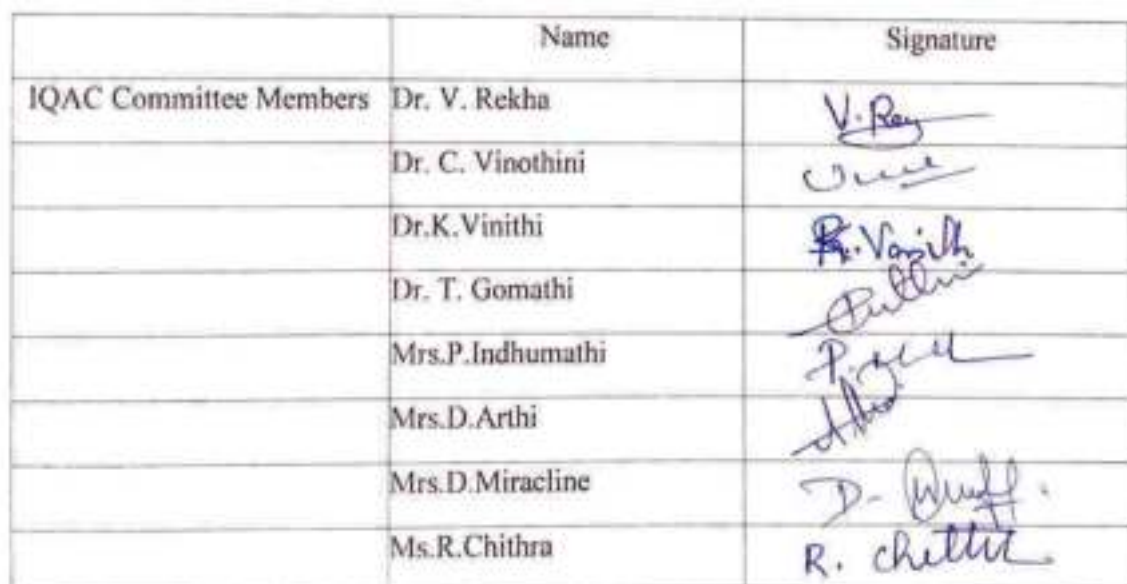 Name Signature
IQAC Committee Members Dr. V. Rekha
Dr. C. Vinothini
Dr.K.Vinithi
Dr. T. Gomathi
Mrs.P.Indhumathi P.
Mrs.D.Arthi
Mrs.D.Miracline D.
Ms.R.Chithra R.